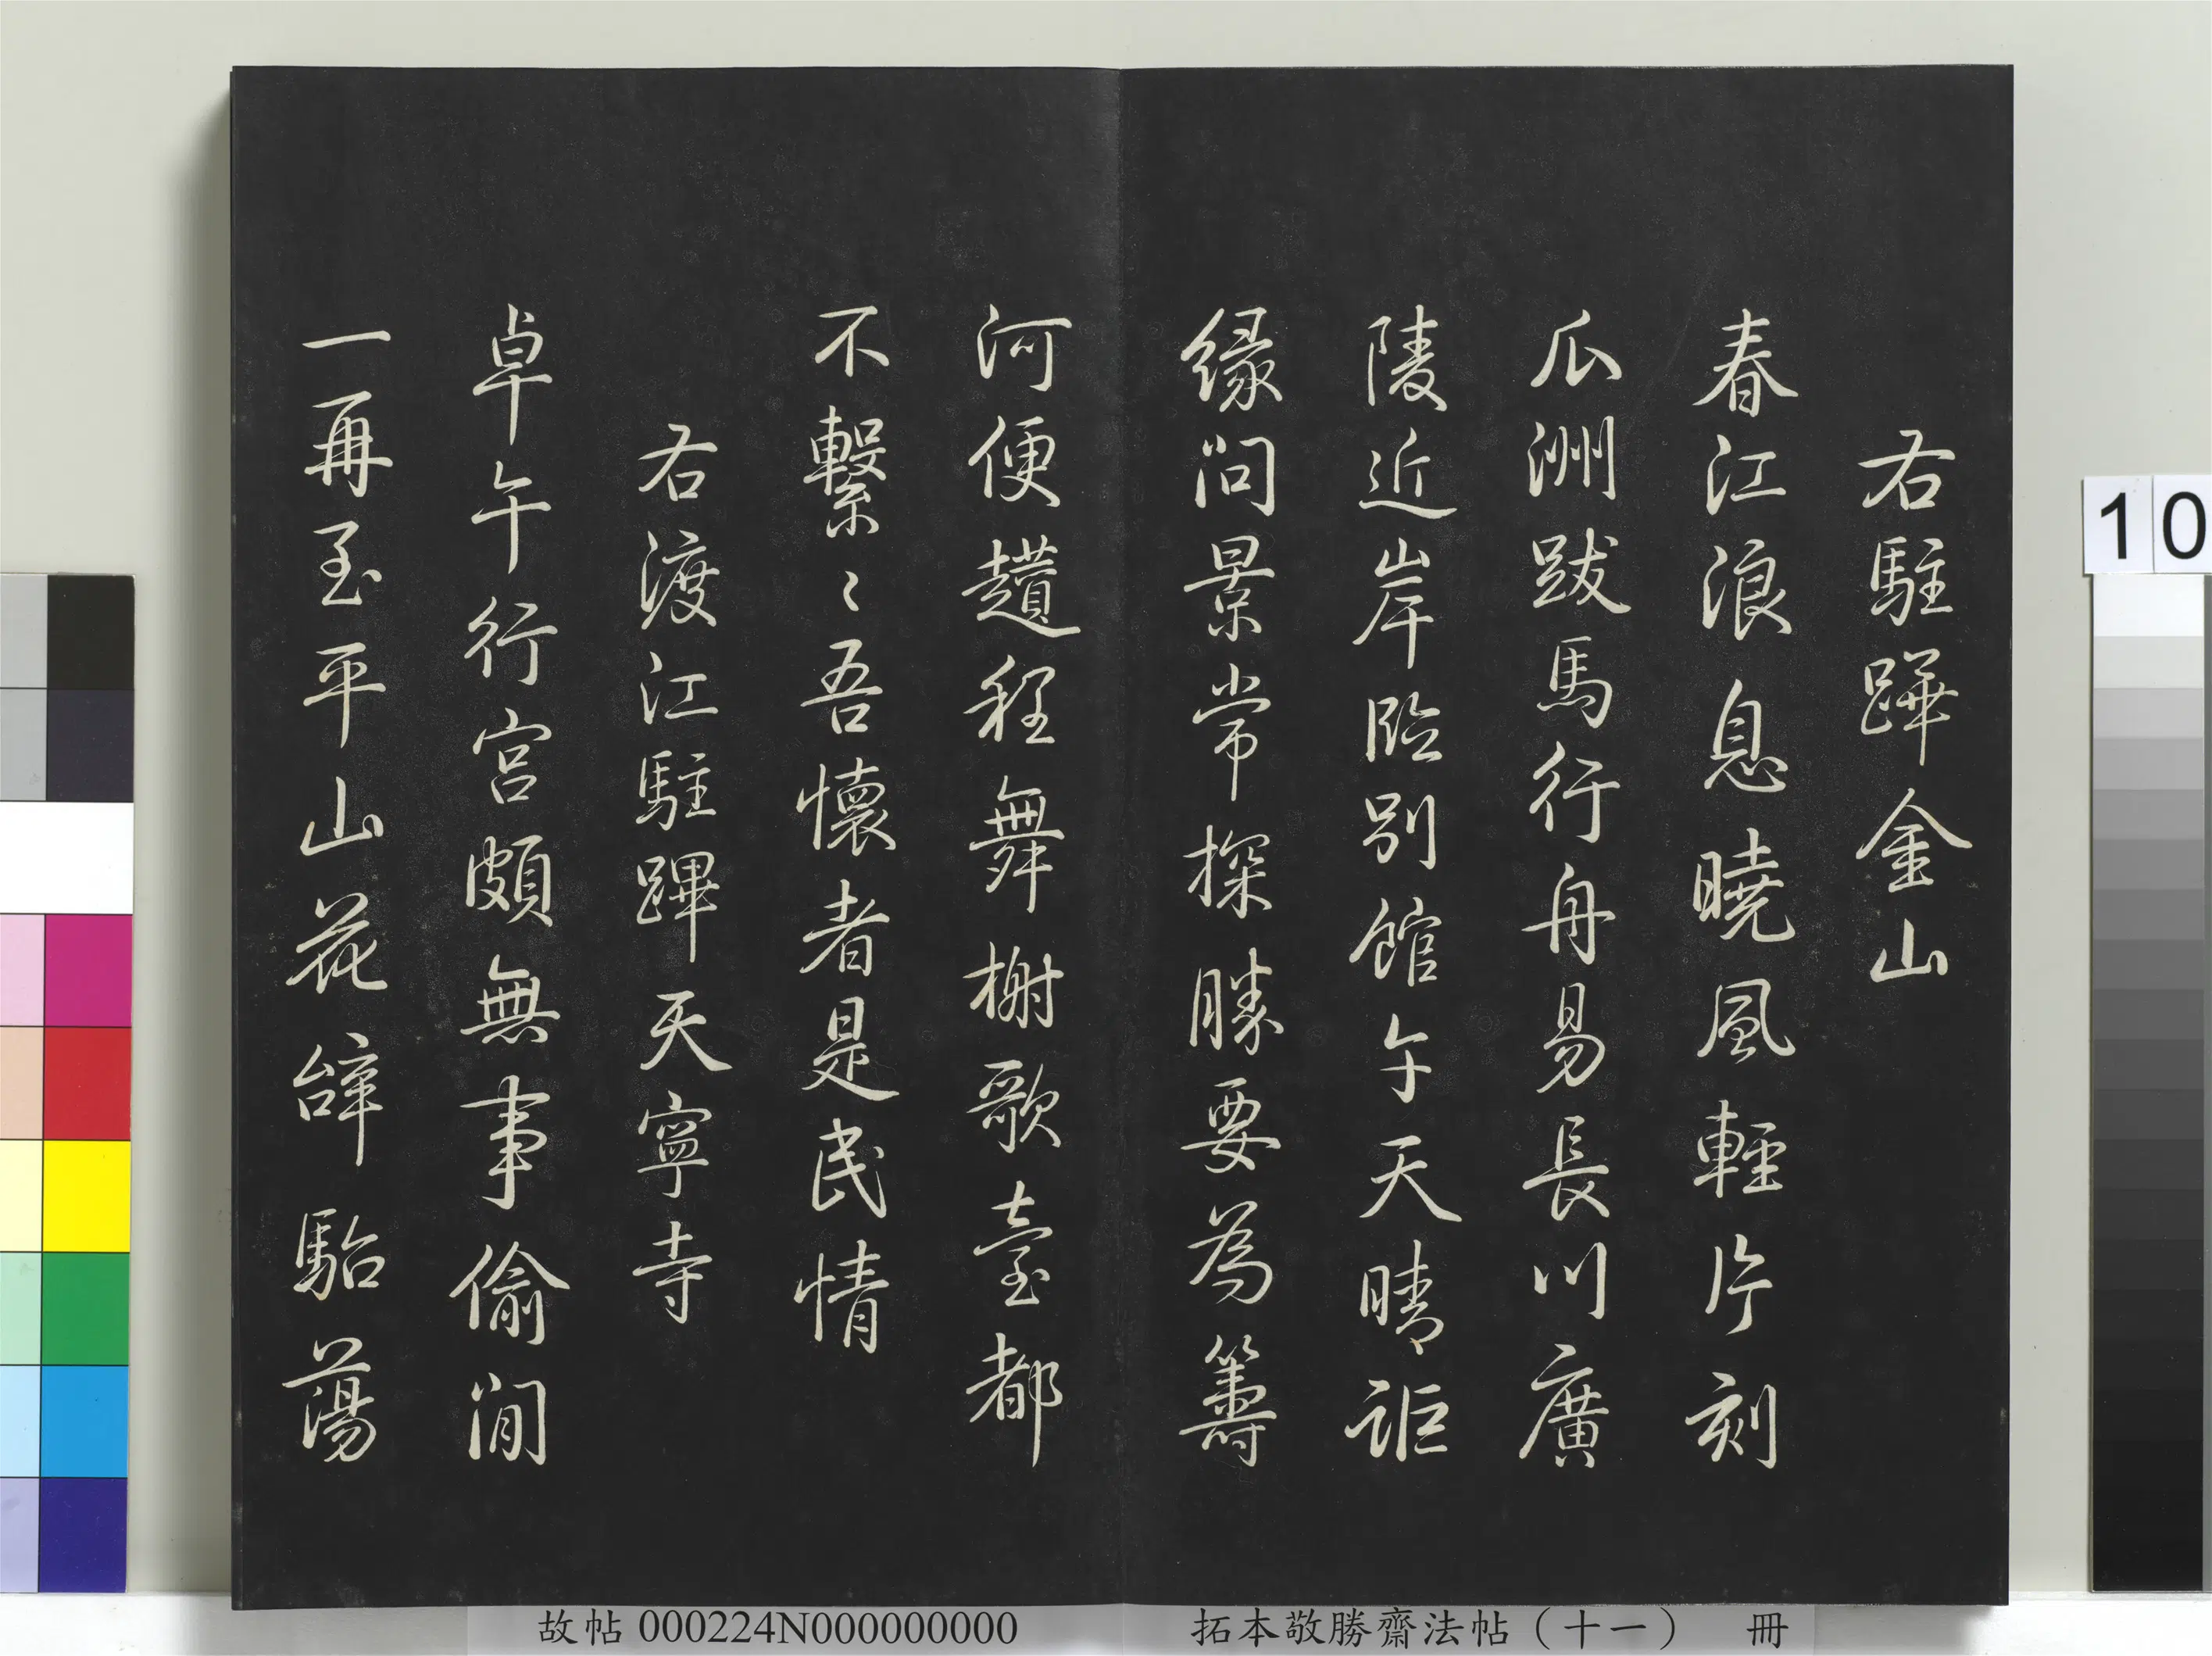 右駐蹕金山
春江浪息曉風輕片刻
瓜洲跋馬行舟易長川廣
陵近岸臨別館午天晴詎
緣問景常探勝要為籌
河便趲程舞榭歌臺都
不繫〻吾懷者是民情
右渡江駐蹕天寧寺
卓午行宮頗無事偷閒
一再至平山花辭駘蕩
故帖000224N000000000
拓本敬勝齋法帖（十一） 冊
10